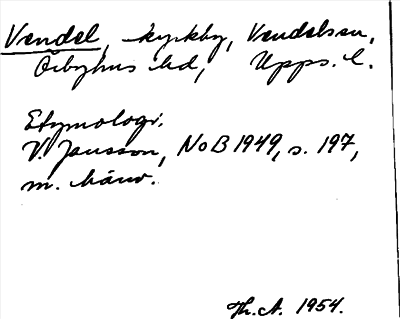 Vendel, kyrkby, Vendelsn,
Örbyhus hd, Upps. l.
Etymologi.
V. Jansson, NoB 1949, s. 197,
m. hänv.
Th. A. 1954.